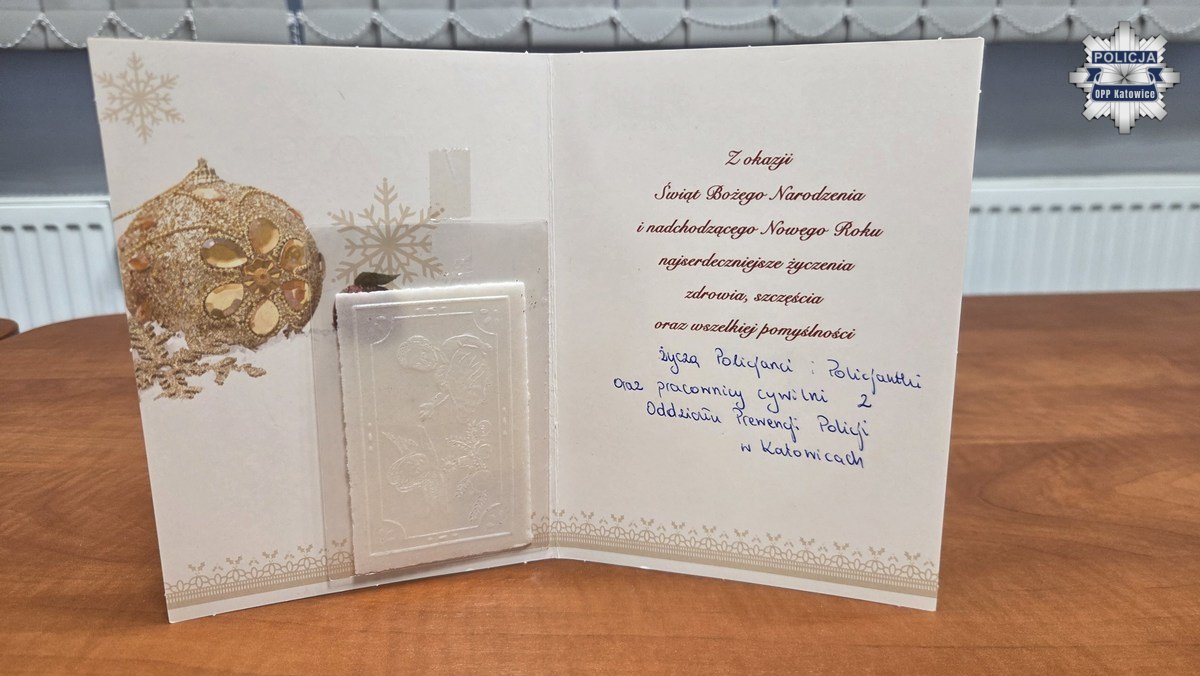 POLICJA
OPP Katowice
Z okazji
Świąt Bożego Narodzenia
i nadchodzącego Nowego Roku
najserdeczniejsze życzenia
zdrowia, szczęścia
oraz wszelkiej pomyślności
życzą Policjanci i Policjantki
oraz pracownicy cywilni z
Oddziału Prewencji Policji
w Katowicach